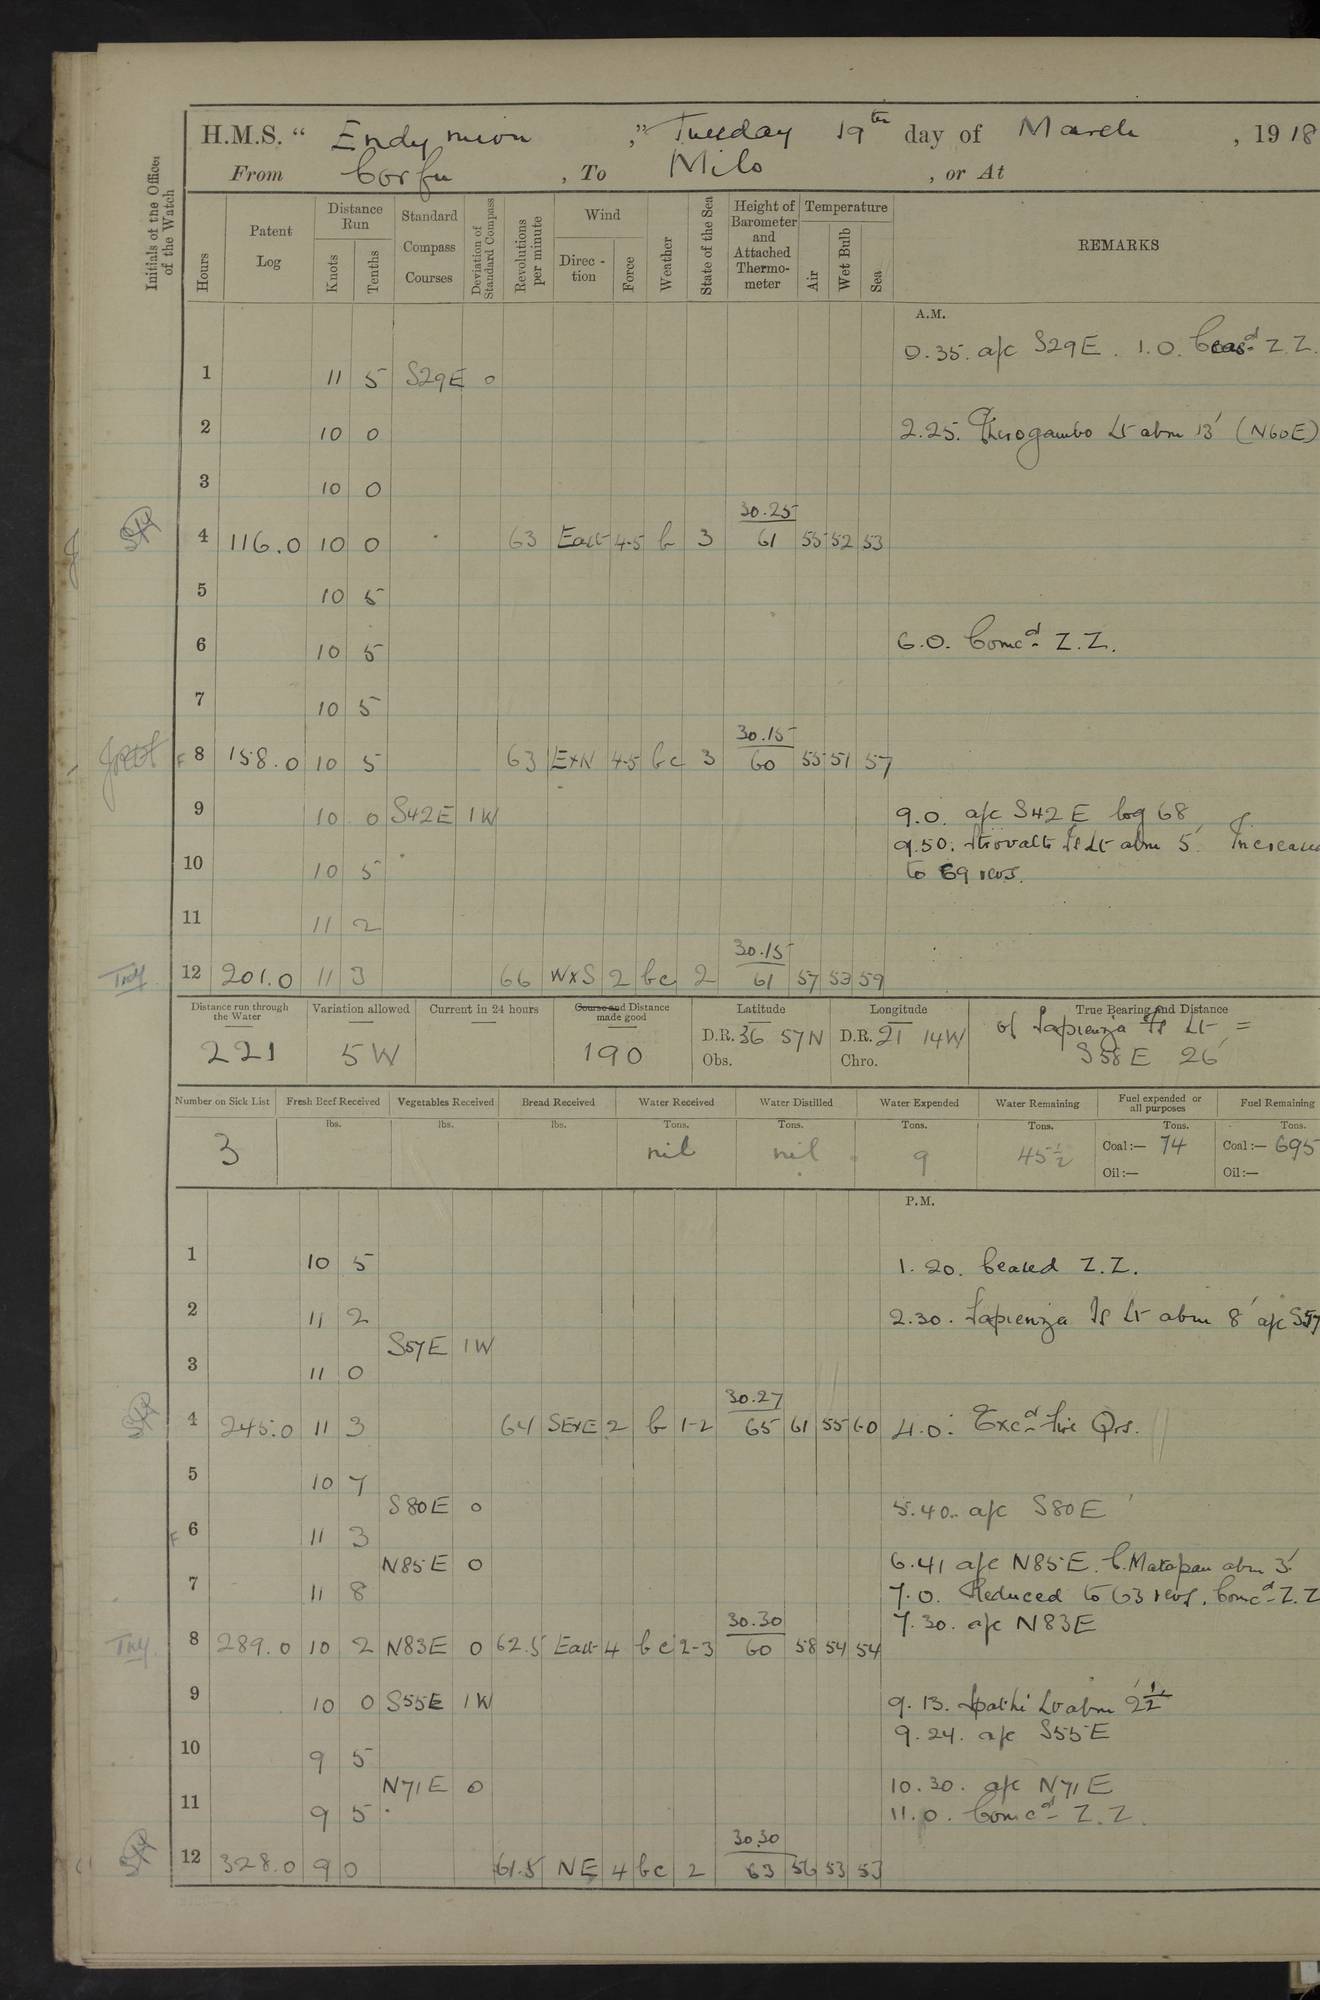 H.M.S. “ Endymion ,” Tuesday 19th day of March , 1918
From Corfu , To Milo , or At
Initials of the Officer of the Watch
Hours
Patent Log
Distance Run
Knots
Tenths
Standard Compass Courses
Deviation of Standard Compass
Revolutions per minute
Wind
Direc-tion
Force
Weather
State of the Sea
Height of Barometer and Attached Thermo-meter
Temperature
Air
Wet Bulb
Sea
REMARKS
A.M.
0.35. a/c S29E. 1.0. Ceasd Z.Z.
1 11 5 S29E 0
2 10 0 2.25. Lt abm 13' (N60E)
3 10 0
30.25
4 116.0 10 0 63 East 4-5 b 3 61 55 52 53
5 10 5
6 10 5 6.0. Comcd Z.Z.
7 10 5
30.15
F 8 158.0 10 5 63 ExN 4-5 bc 3 60 55 51 57
9 10 0 S42E 1W 9.0. a/c S42E log 68
9.50. Is Lt abm 5' Increased
10 10 5 to 69 revs.
11 11 2
30.15
12 201.0 11 3 66 WxS 2 bc 2 61 57 53 59
Distance run through the Water
Variation allowed
Current in 24 hours
Course and Distance made good
Latitude
Longitude
True Bearing and Distance
221 5W 190 D.R. 36 57N D.R. 21 14W of Sapienza Is Lt =
Obs. Chro. S58E 26'
Number on Sick List
Fresh Beef Received
Vegetables Received
Bread Received
Water Received
Water Distilled
Water Expended
Water Remaining
Fuel expended or all purposes
Fuel Remaining
lbs. lbs. lbs. Tons. Tons. Tons. Tons. Tons. Tons.
3 nil nil 9 45½ Coal:— 74 Coal:— 695
Oil:— Oil:—
P.M.
1 10 5 1.20. Ceased Z.Z.
2 11 2 2.30. Sapienza Is Lt abm 8' a/c S57
S57E 1W
3 11 0
30.27
4 245.0 11 3 64 SExE 2 b 1-2 65 61 55 60 4.0. Excd Fire Qrs.
5 10 7
S80E 0 5.40. a/c S80E
F 6 11 3
N85E 0 6.41 a/c N85E. C. Matapan abm 3'
7 11 8 7.0. Reduced to 63 revs. Comcd Z.Z
30.30 7.30. a/c N83E
8 289.0 10 2 N83E 0 62.5 East 4 bc 2-3 60 58 54 54
9 10 0 S55E 1W 9.13. Spathi Lt abm 2½'
9.24. a/c S55E
10 9 5
N71E 0 10.30. a/c N71E
11 9 5 11.0. Comcd Z.Z.
30.30
12 328.0 9 0 61.5 NE 4 bc 2 63 56 53 53